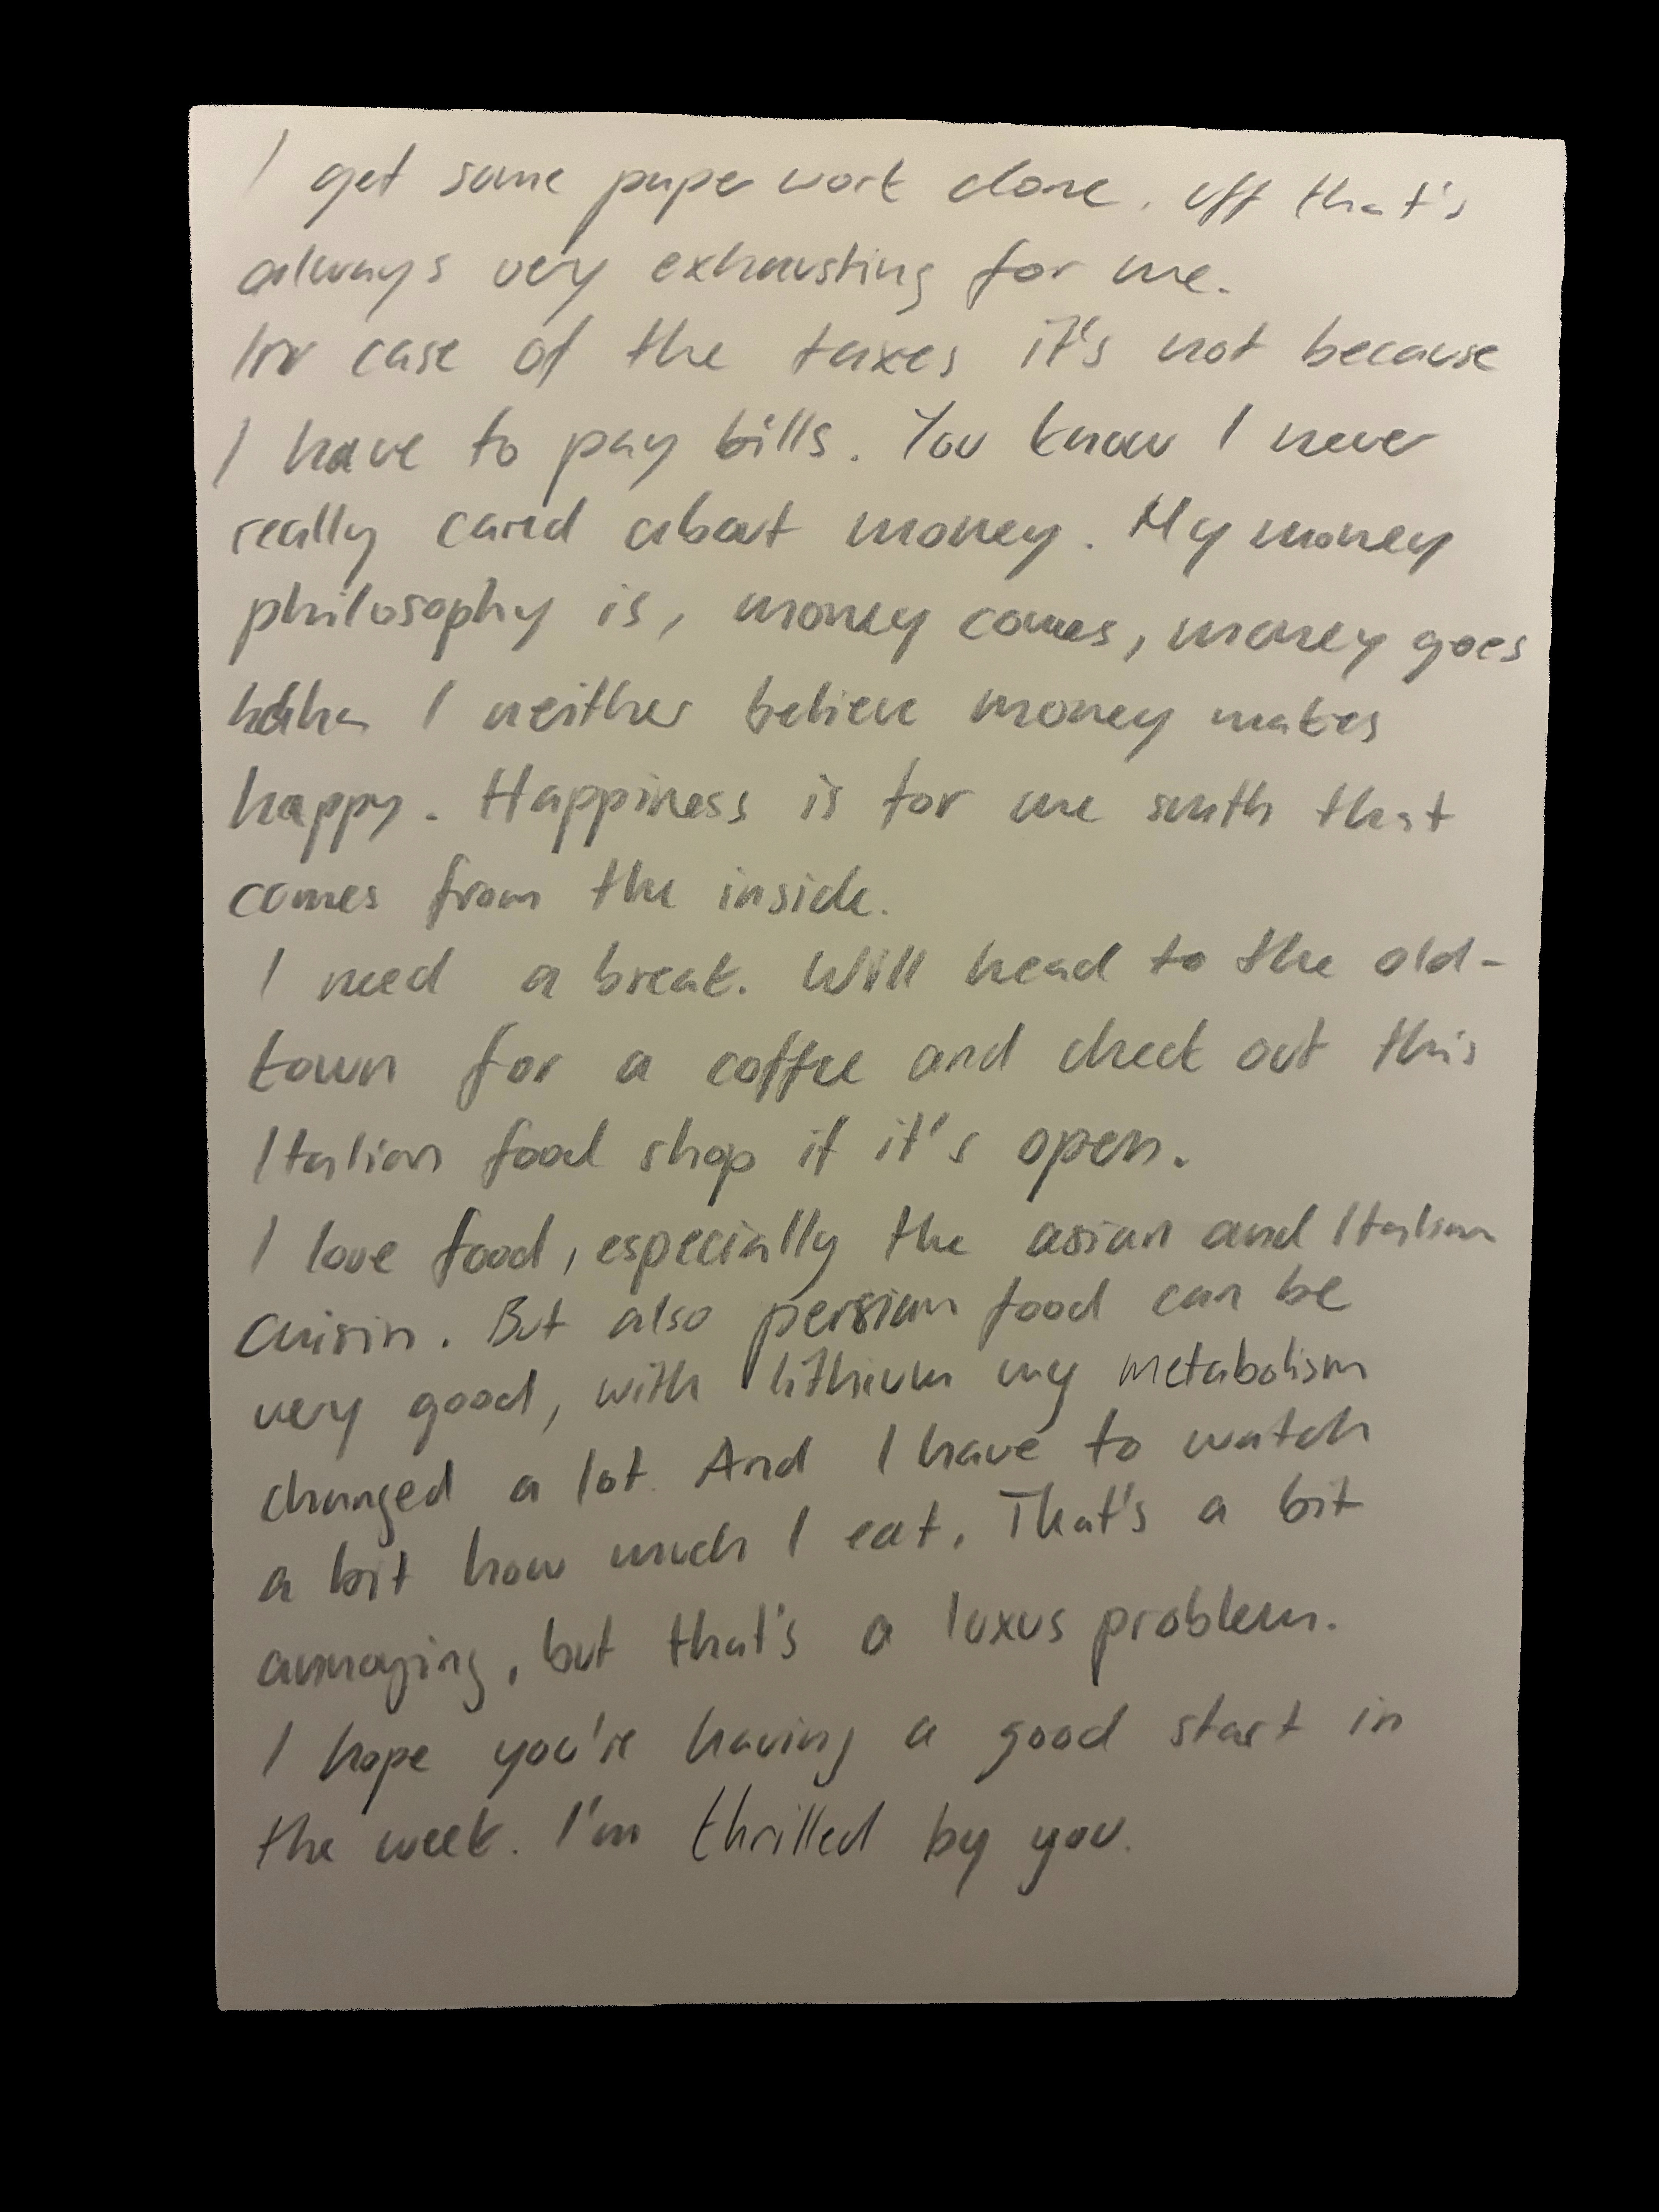 I get some paper work done. uff that's
always very exhausting for me.
In case of the taxes it's not because
I have to pay bills. You know I never
really cared about money. My money
philosophy is, money comes, money goes
haha I neither believe money makes
happy. Happiness is for me smth that
comes from the inside.
I need a break. Will head to the old-
town for a coffee and check out this
Italian food shop if it's open.
I love food, especially the asian and Italian
cuisin. But also persian food can be
very good, with lithium my metabolism
changed a lot. And I have to watch
a bit how much I eat. That's a bit
annoying, but that's a luxus problem.
I hope you're having a good start in
the week. I'm thrilled by you.